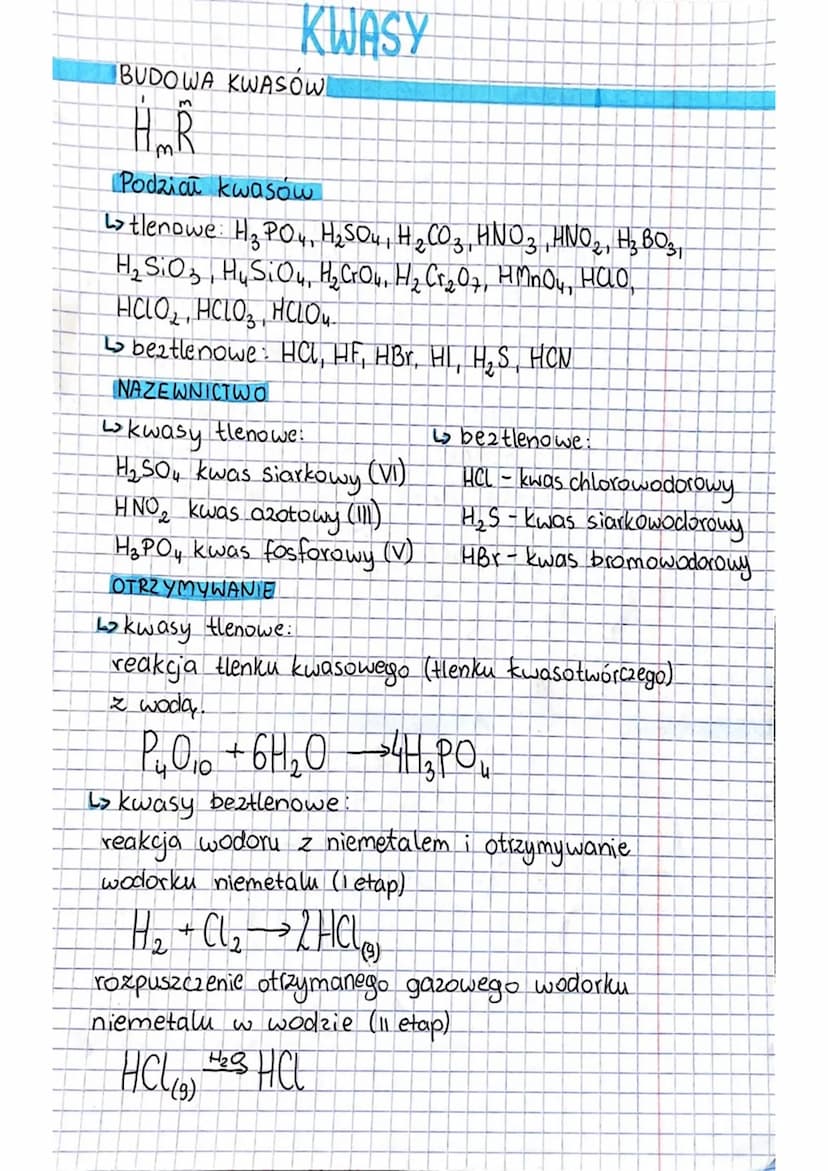 KWASY
BUDOWA KWASÓW
HₘR
Podział kwasów
↳ tlenowe: H₃PO₄, H₂SO₄, H₂CO₃, HNO₃, HNO₂, H₃BO₃,
H₂SiO₃, H₄SiO₄, H₂CrO₄, H₂Cr₂O₇, HMnO₄, HClO,
HClO₂, HClO₃, HClO₄.
↳ beztlenowe: HCl, HF, HBr, HI, H₂S, HCN
NAZEWNICTWO
↳ kwasy tlenowe:
H₂SO₄ kwas siarkowy (VI)
HNO₂ kwas azotowy (III)
H₃PO₄ kwas fosforowy (V)
↳ beztlenowe:
HCl - kwas chlorowodorowy
H₂S - kwas siarkowodorowy
HBr - kwas bromowodorowy
OTRZYMYWANIE
↳ kwasy tlenowe:
reakcja tlenku kwasowego (tlenku kwasotwórczego)
z wodą.
P₄O₁₀ + 6H₂O → 4H₃PO₄
↳ kwasy beztlenowe:
reakcja wodoru z niemetalem i otrzymywanie
wodorku niemetalu (I etap)
H₂ + Cl₂ → 2HCl(g)
rozpuszczenie otrzymanego gazowego wodorku
niemetalu w wodzie (II etap)
HCl(g) HCl